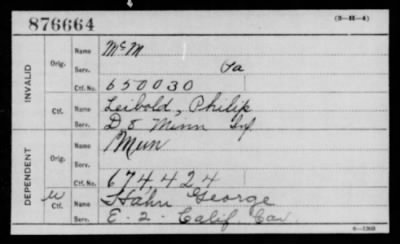 876664
(3—H—4)
INVALID
Orig.
Name McM
Serv. Pa
Ctf. No. 650030
Ctf.
Name Leibold, Philip
Serv. D 5 Minn Inf
DEPENDENT
Orig.
Name Mun
Serv.
Ctf. No. 674424
Ctf.
Name Hahn George
Serv. E-2-Calif. Cav.